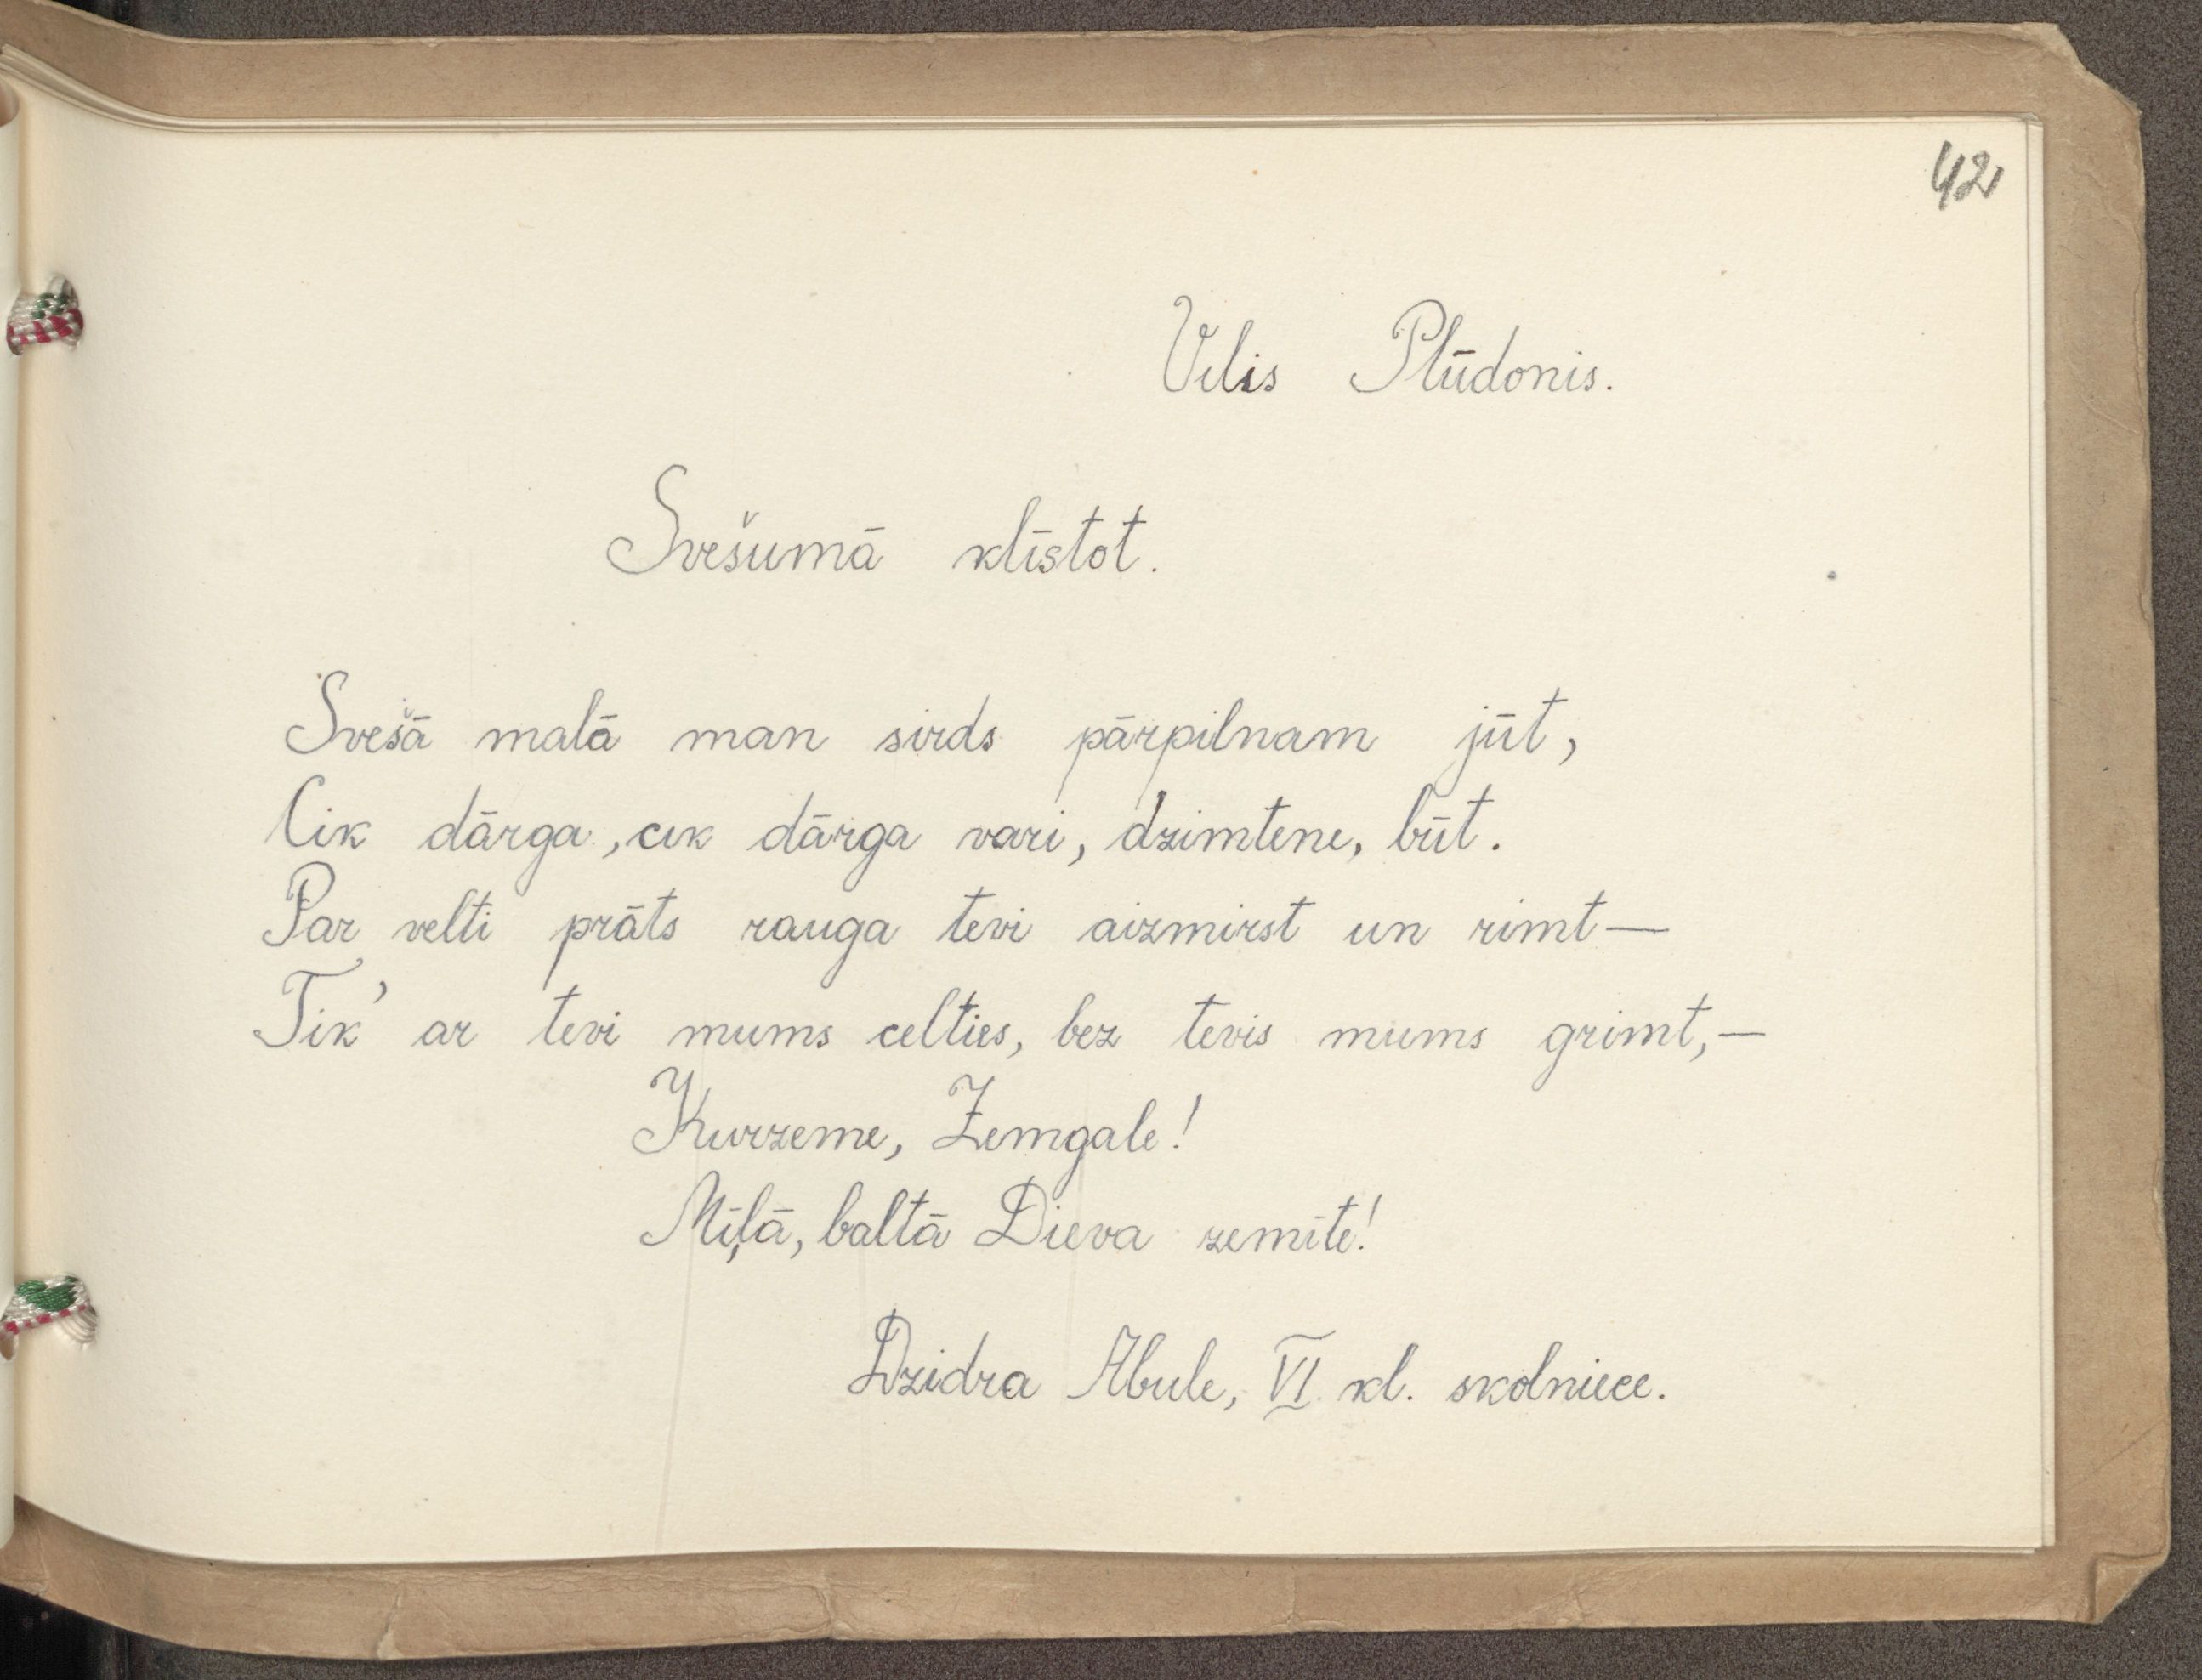 42
Vilis Plūdonis.
Svešumā klīstot.
Svešā malā man sirds pārpilnam jūt,
Cik dārga, cik dārga vari, dzimtene, būt.
Par velti prāts rauga tevi aizmirst un rimt—
Tik' ar tevi mums celties, bez tevis mums grimt,—
Kurzeme, Zemgale!
Mīļā, baltā Dieva zemīte!
Dzidra Abule, VI kl. skolniece.